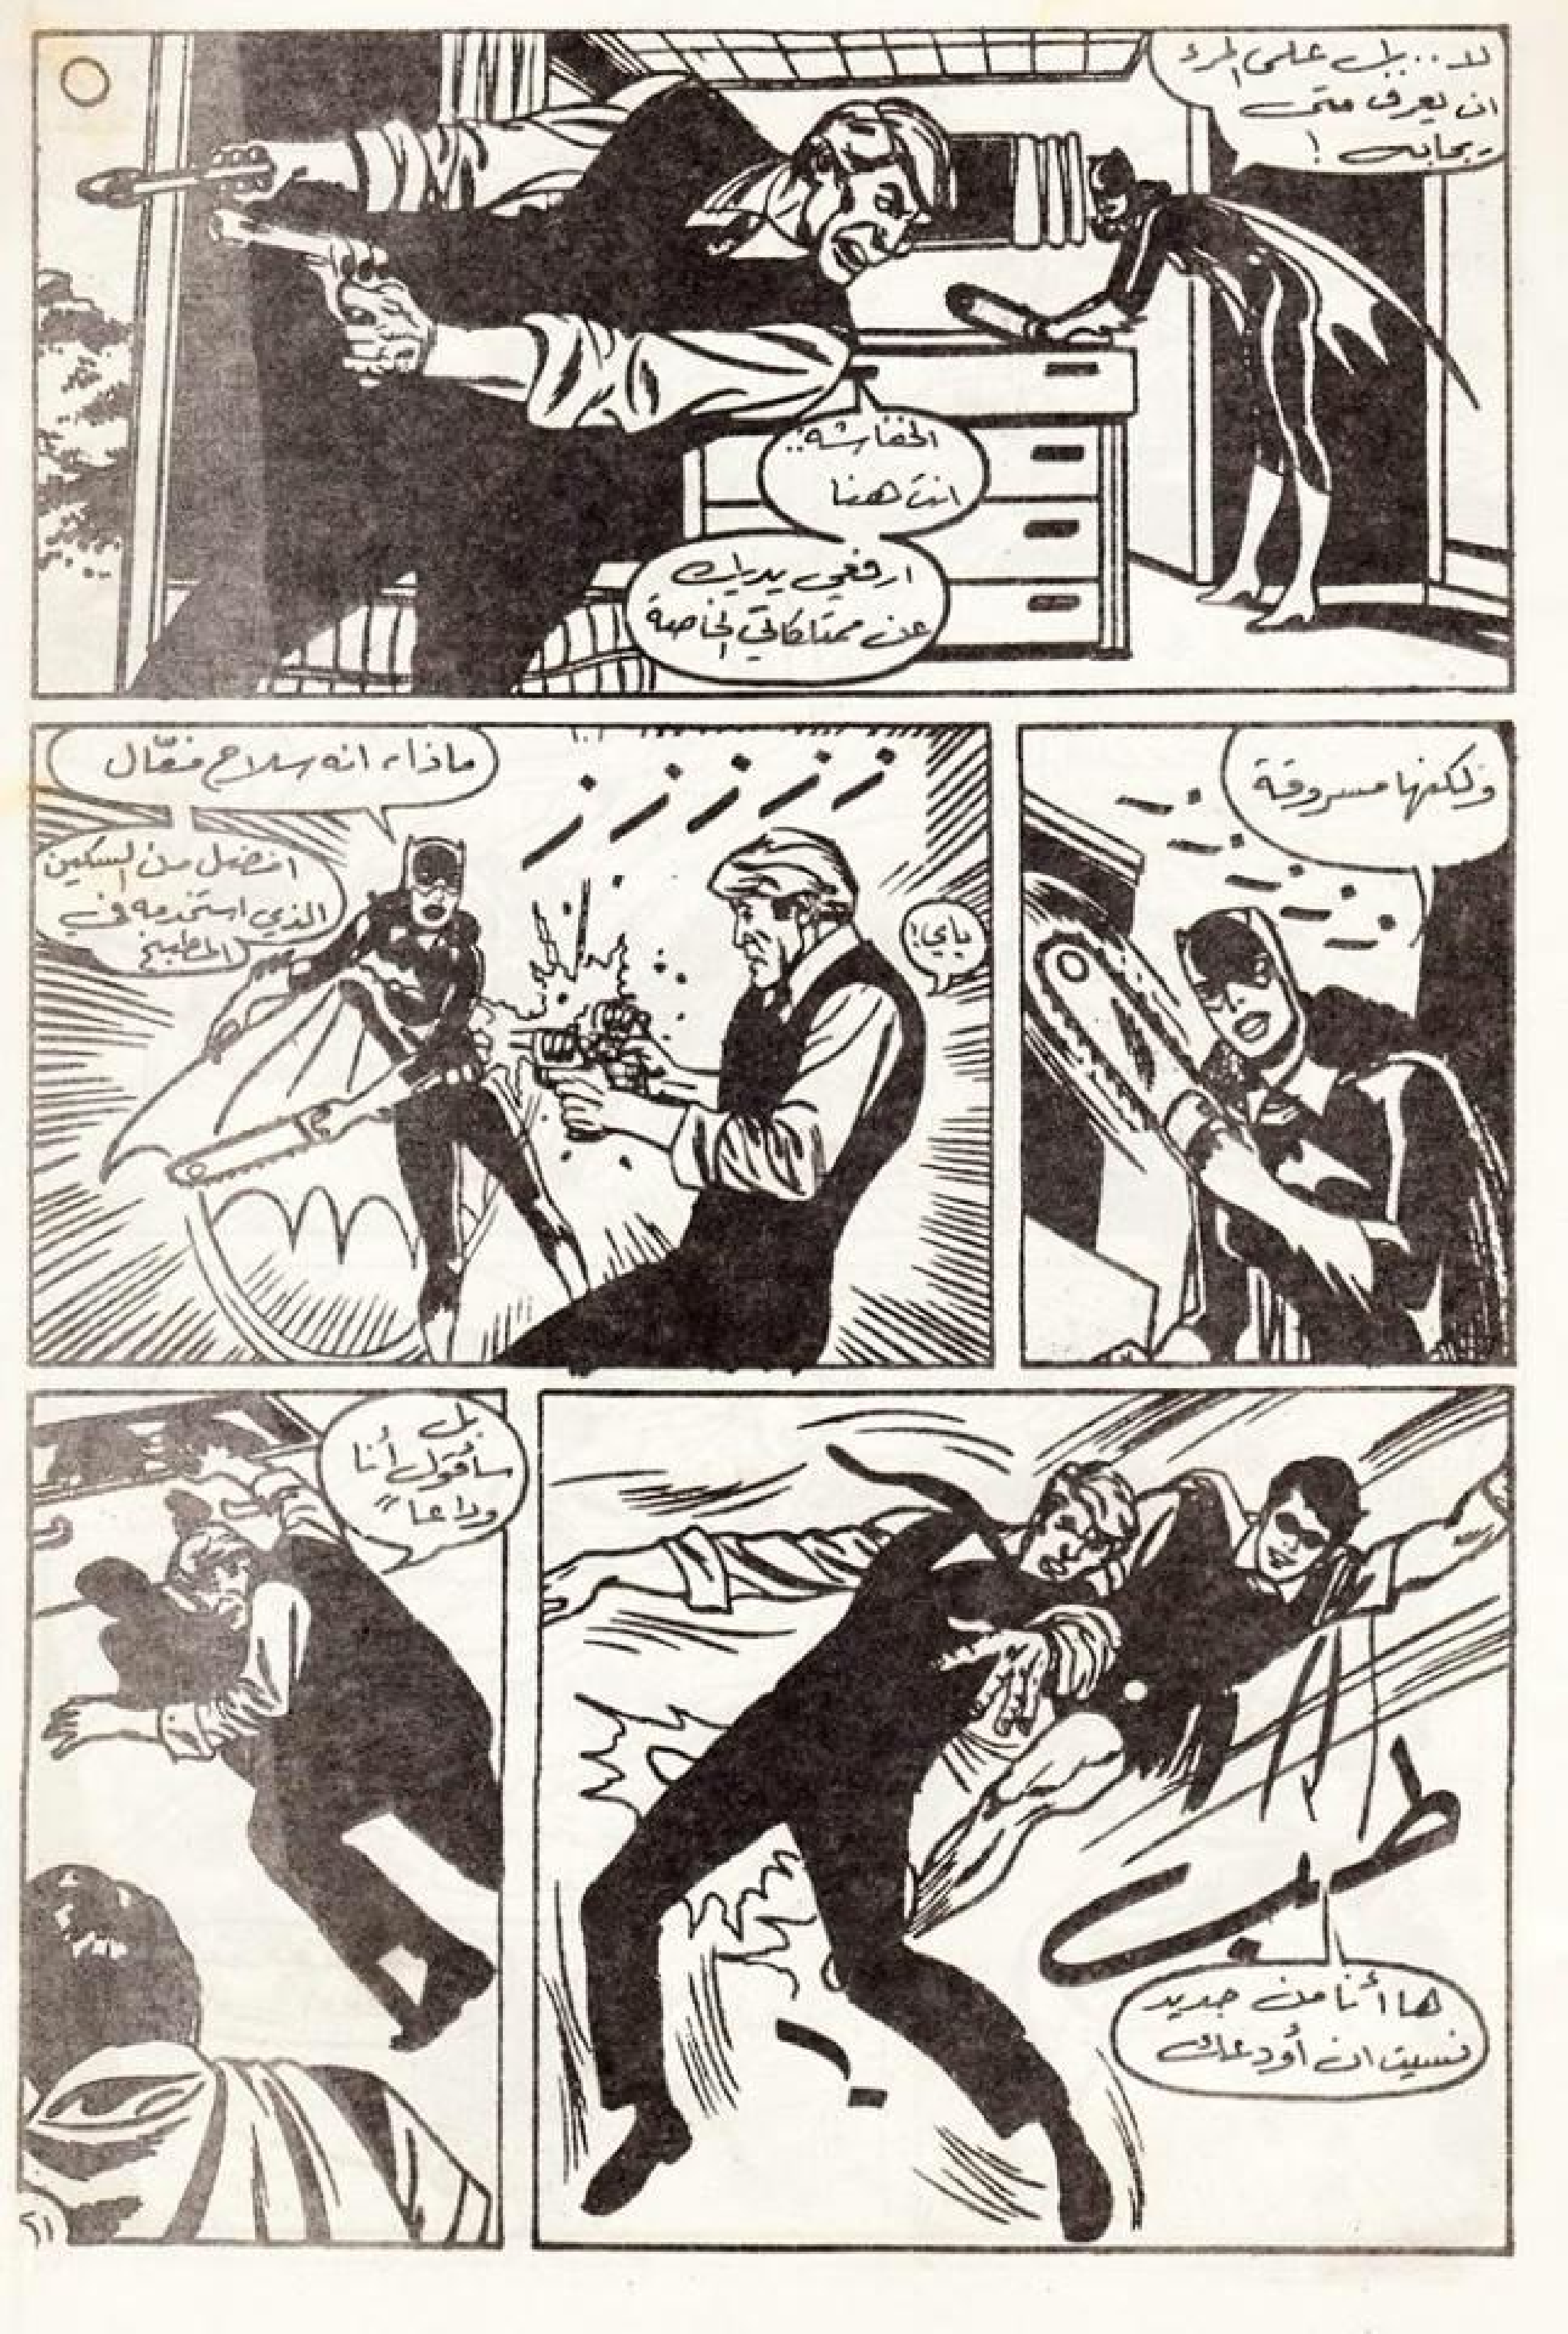 لا... بل على المرء
ان يعرف متى
يجابه !
الخفاشة..
انت هنا
ارفعي يديك
عن ممتلكاتي الخاصة
ولكنها مسروقة
ماذا، انه سلاح فعّال
افضل من السكين
الذي استخدمه في
المطبخ
ياي!
طب
ها أنا من جديد
نسيت ان أودعك
بل
سأقول أنا
وداعاً
٢١